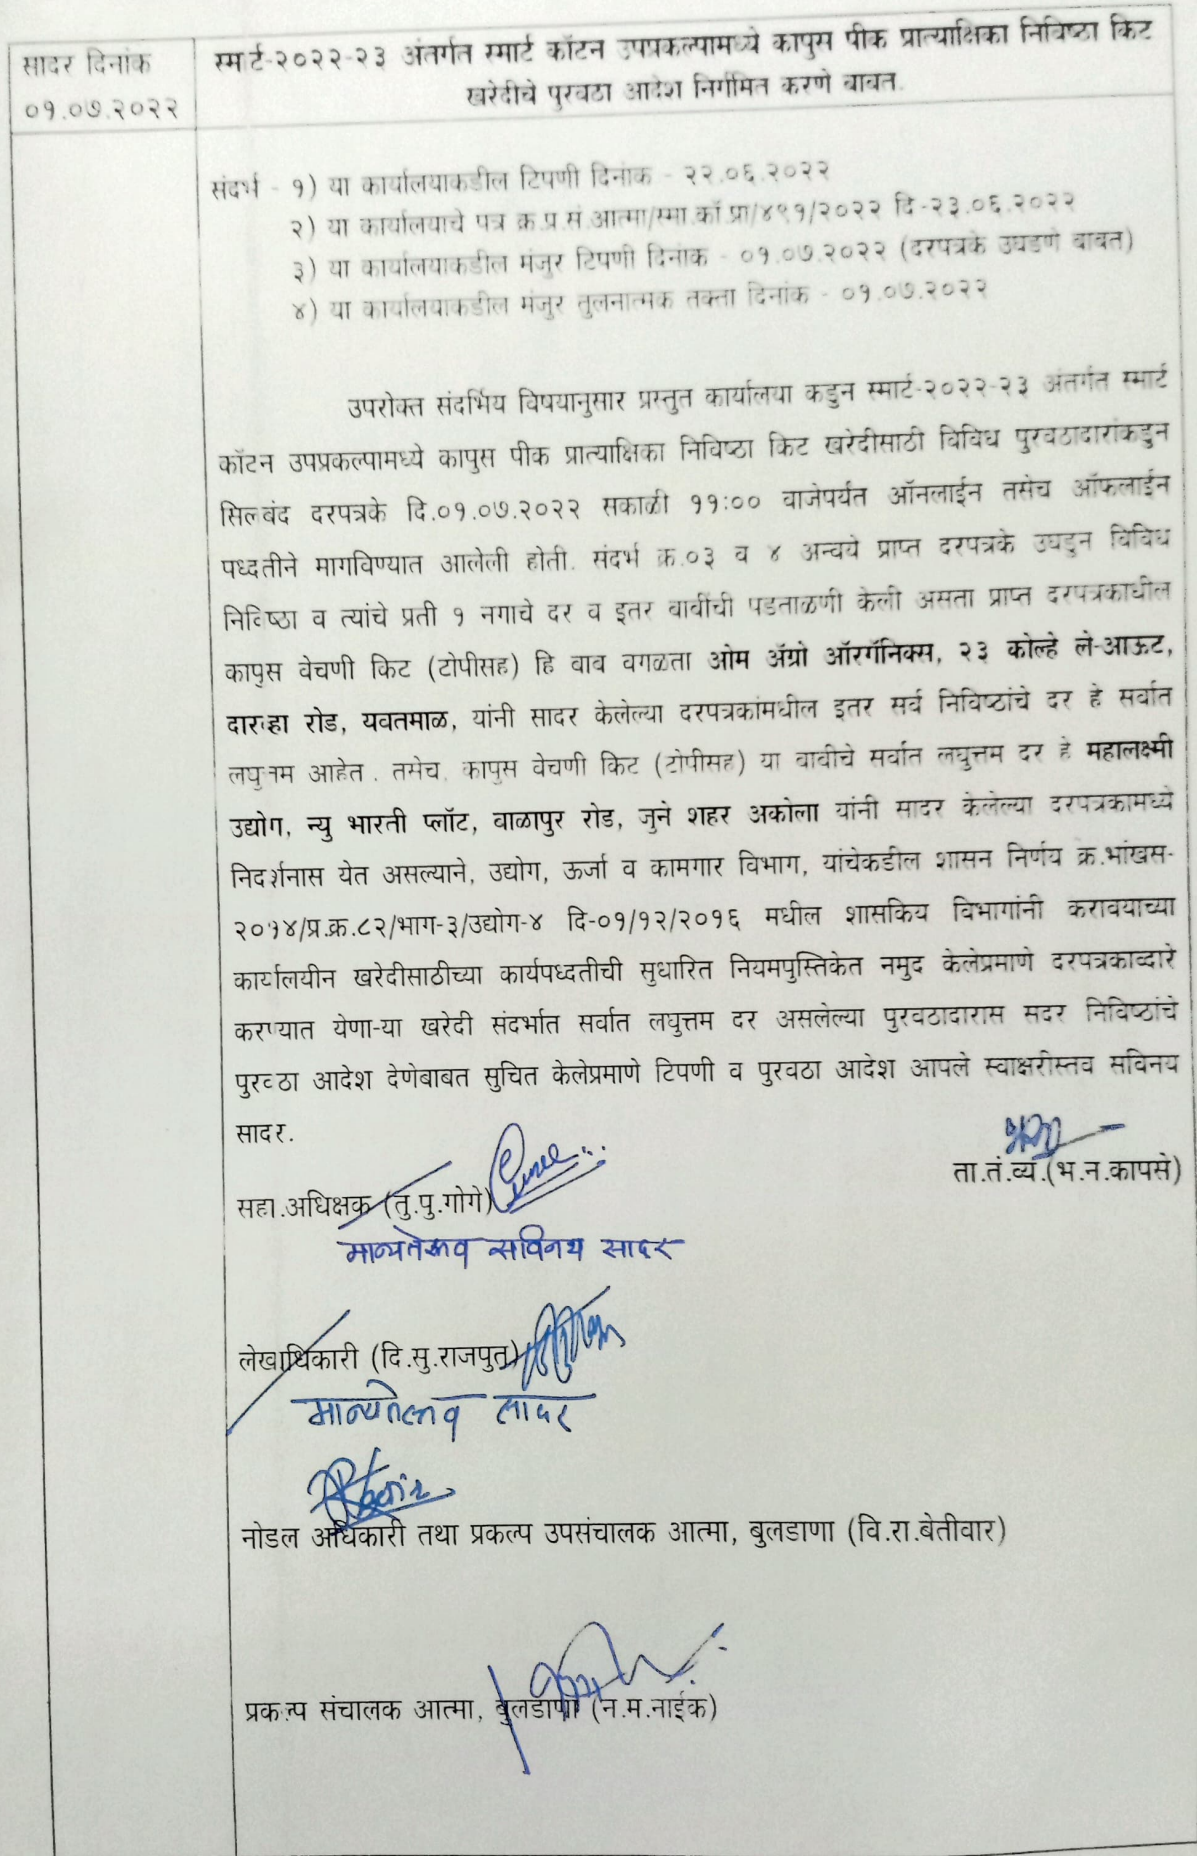 सादर दिनांक
०१.०७.२०२२
स्मार्ट-२०२२-२३ अंतर्गत स्मार्ट कॉटन उपप्रकल्पामध्ये कापुस पीक प्रात्याक्षिका निविष्ठा किट
खरेदीचे पुरवठा आदेश निर्गमित करणे बाबत.
संदर्भ - १) या कार्यालयाकडील टिपणी दिनांक - २२.०६.२०२२
२) या कार्यालयाचे पत्र क्र.प्र.सं.आत्मा/स्मा.कॉ.प्रा/४९१/२०२२ दि-२३.०६.२०२२
३) या कार्यालयाकडील मंजुर टिपणी दिनांक - ०१.०७.२०२२ (दरपत्रके उघडणे बाबत)
४) या कार्यालयाकडील मंजुर तुलनात्मक तक्ता दिनांक - ०१.०७.२०२२
उपरोक्त संदर्भिय विषयानुसार प्रस्तुत कार्यालया कडुन स्मार्ट-२०२२-२३ अंतर्गत स्मार्ट
कॉटन उपप्रकल्पामध्ये कापुस पीक प्रात्याक्षिका निविष्ठा किट खरेदीसाठी विविध पुरवठादारांकडुन
सिलबंद दरपत्रके दि.०१.०७.२०२२ सकाळी ११:०० वाजेपर्यंत ऑनलाईन तसेच ऑफलाईन
पध्दतीने मागविण्यात आलेली होती. संदर्भ क्र.०३ व ४ अन्वये प्राप्त दरपत्रके उघडुन विविध
निविष्ठा व त्यांचे प्रती १ नगाचे दर व इतर बाबींची पडताळणी केली असता प्राप्त दरपत्रकाधील
कापुस वेचणी किट (टोपीसह) हि बाब वगळता ओम ॲग्रो ऑरगॅनिक्स, २३ कोल्हे ले-आऊट,
दारव्हा रोड, यवतमाळ, यांनी सादर केलेल्या दरपत्रकांमधील इतर सर्व निविष्ठांचे दर हे सर्वात
लघुत्तम आहेत . तसेच, कापुस वेचणी किट (टोपीसह) या बाबीचे सर्वात लघुत्तम दर हे महालक्ष्मी
उद्योग, न्यु भारती प्लॉट, बाळापुर रोड, जुने शहर अकोला यांनी सादर केलेल्या दरपत्रकामध्ये
निदर्शनास येत असल्याने, उद्योग, ऊर्जा व कामगार विभाग, यांचेकडील शासन निर्णय क्र.भांखस-
२०१४/प्र.क्र.८२/भाग-३/उद्योग-४ दि-०१/१२/२०१६ मधील शासकिय विभागांनी करावयाच्या
कार्यालयीन खरेदीसाठीच्या कार्यपध्दतीची सुधारित नियमपुस्तिकेत नमुद केलेप्रमाणे दरपत्रकाव्दारे
करण्यात येणा-या खरेदी संदर्भात सर्वात लघुत्तम दर असलेल्या पुरवठादारास सदर निविष्ठांचे
पुरवठा आदेश देणेबाबत सुचित केलेप्रमाणे टिपणी व पुरवठा आदेश आपले स्वाक्षरीस्तव सविनय
सादर.
ता.तं.व्य.(भ.न.कापसे)
सहा.अधिक्षक (तु.पु.गोगे)
मान्यतेस्तव सविनय सादर
लेखाधिकारी (दि.सु.राजपुत)
मान्यतेस्तव सादर
नोडल अधिकारी तथा प्रकल्प उपसंचालक आत्मा, बुलडाणा (वि.रा.बेतीवार)
प्रकल्प संचालक आत्मा, बुलडाणा (न.म.नाईक)